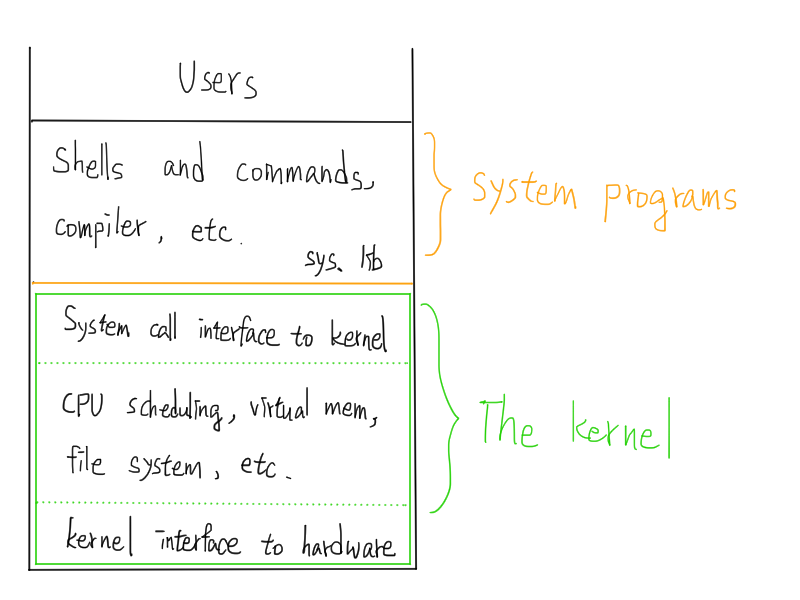 Users
Shells and commands,
compiler, etc.
sys. lib
System programs
System call interface to kernel
CPU scheduling, virtual mem,
file system, etc.
The kernel
kernel interface to hardware